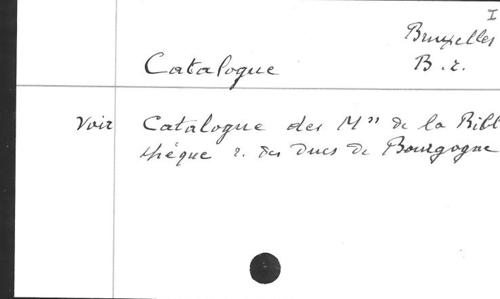 I
Bruxelles
Catalogue B. r.
Voir Catalogue des Mss de la Bibl
thèque r. des Ducs de Bourgogne